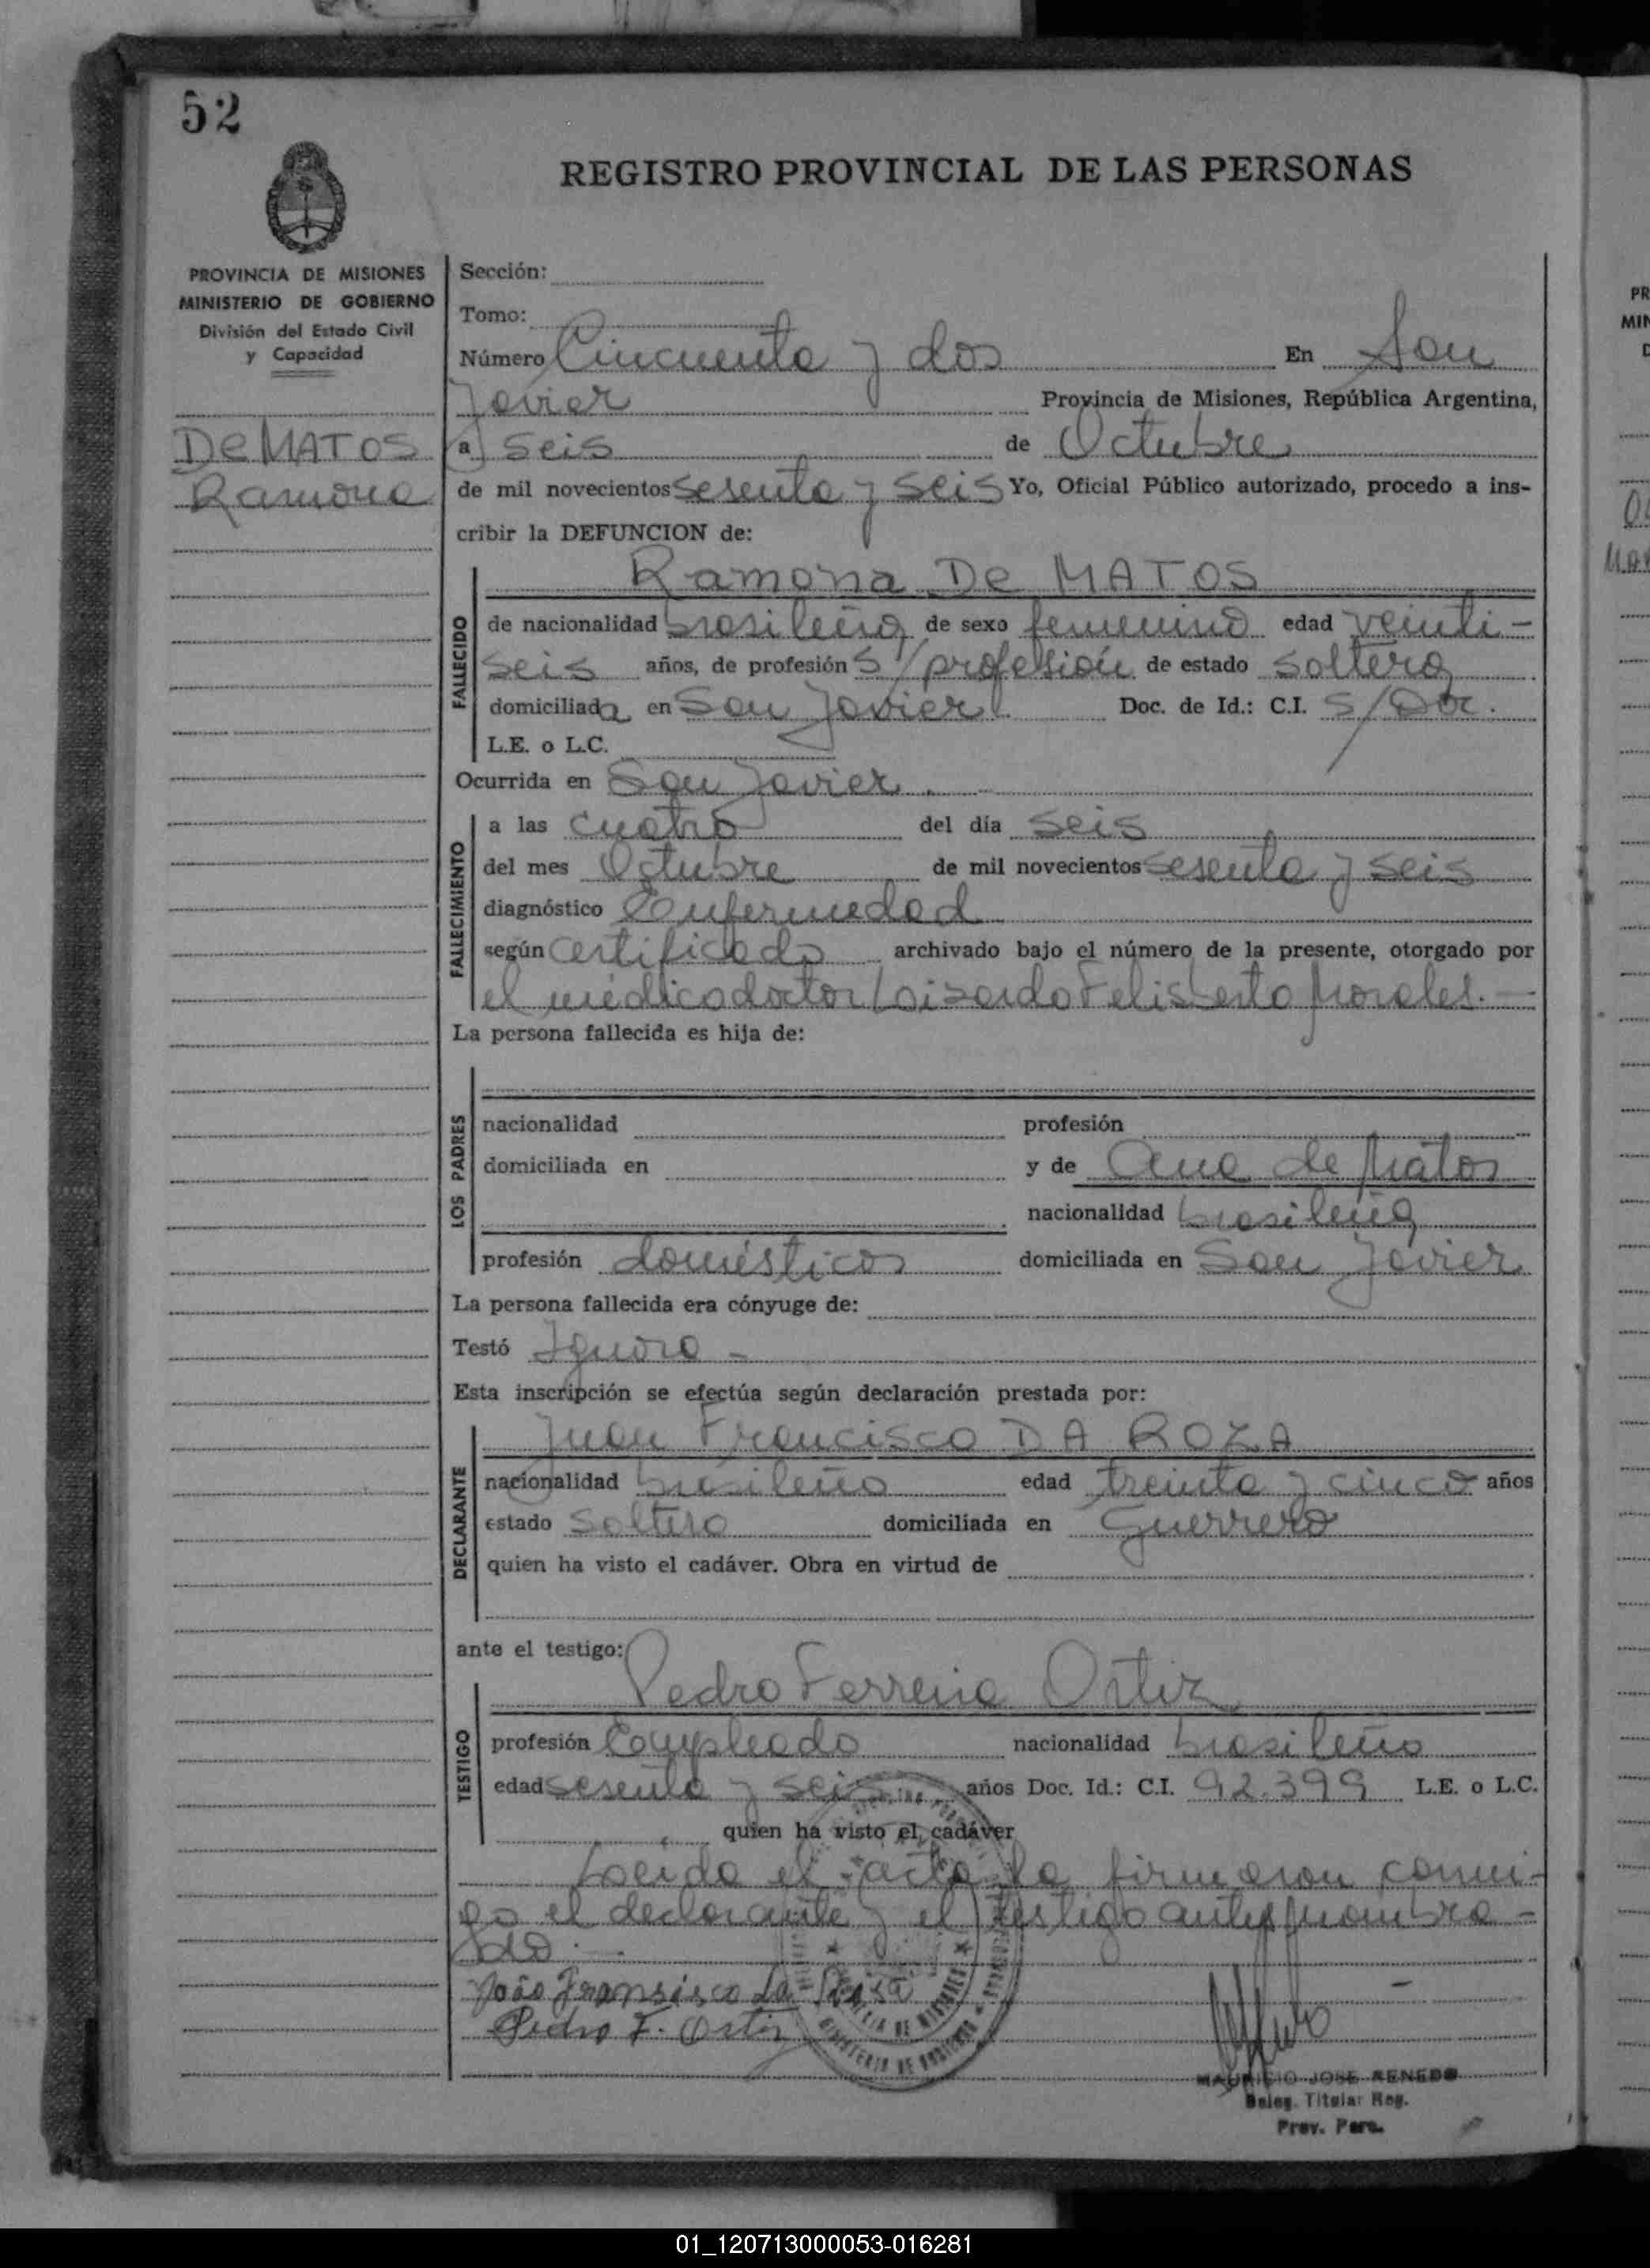 52
REGISTRO PROVINCIAL DE LAS PERSONAS
PROVINCIA DE MISIONES
MINISTERIO DE GOBIERNO
División del Estado Civil
y Capacidad
De MATOS
Ramona
Sección:
Tomo:
Número Cincuenta y dos En San
Javier Provincia de Misiones, República Argentina,
a seis de Octubre
de mil novecientos sesenta y seis Yo, Oficial Público autorizado, procedo a ins-
cribir la DEFUNCION de:
Ramona De MATOS
FALLECIDO
de nacionalidad brasileña de sexo femenino edad veinti-
seis años, de profesión S/profession de estado soltera
domiciliada en San Javier. Doc. de Id.: C.I. S/Doc.
L.E. o L.C.
Ocurrida en San Javier.
FALLECIMIENTO
a las cuatro del día seis
del mes Octubre de mil novecientos sesenta y seis
diagnóstico Enfermedad
según certificado archivado bajo el número de la presente, otorgado por
el médico doctor Felisberto Morales.-
La persona fallecida es hija de:
LOS PADRES
nacionalidad profesión
domiciliada en y de Ana de Matos
nacionalidad brasileña
profesión domésticos domiciliada en San Javier
La persona fallecida era cónyuge de:
Testó Ignoro -
Esta inscripción se efectúa según declaración prestada por:
Juan Francisco DA ROZA
DECLARANTE
nacionalidad brasileño edad treinta y cinco años
estado soltero domiciliada en Guerrero
quien ha visto el cadáver. Obra en virtud de
ante el testigo:
Pedro Ferreira Ortiz
TESTIGO
profesión Empleado nacionalidad brasileño
edad sesenta y seis años Doc. Id.: C.I. 92.399 L.E. o L.C.
quien ha visto el cadáver
Leida el acta la firmaron conmi-
go el declarante y el testigo antes nombra-
do.-
João Fransisco da Rosa
Pedro F. Ortiz
MAURICIO JOSE RENEDO
Deleg. Titular Reg.
Prov. Pers.
01_120713000053-016281